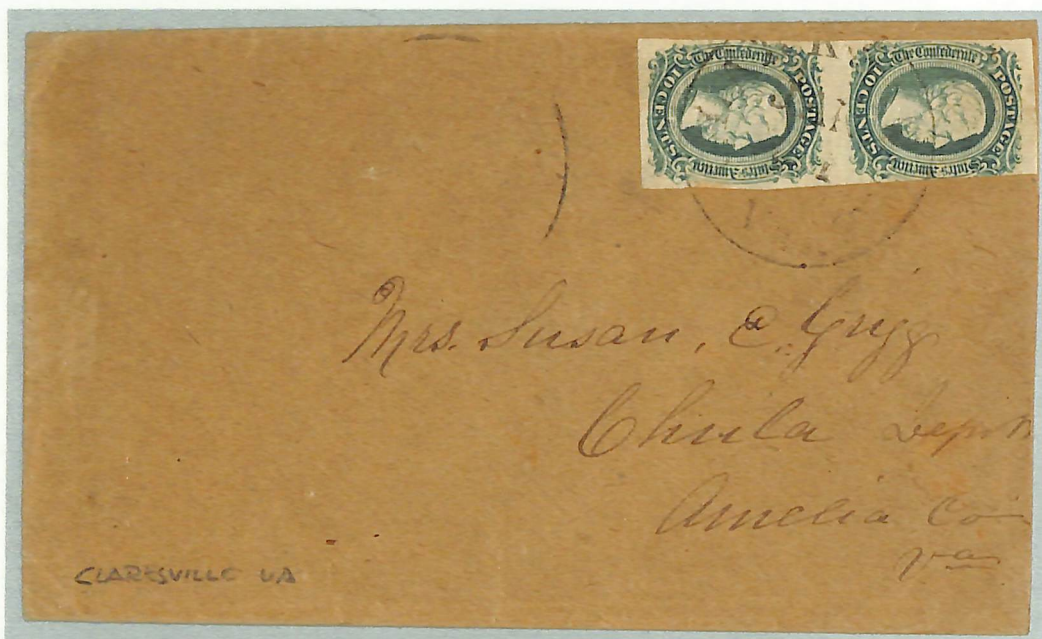 The Confederate
States America
POSTAGE
TEN CENTS
The Confederate
States America
POSTAGE
TEN CENTS
Mrs. Susan, E. Grigg
Chula Depot
Amelia Co
Va
CLARKSVILLE VA